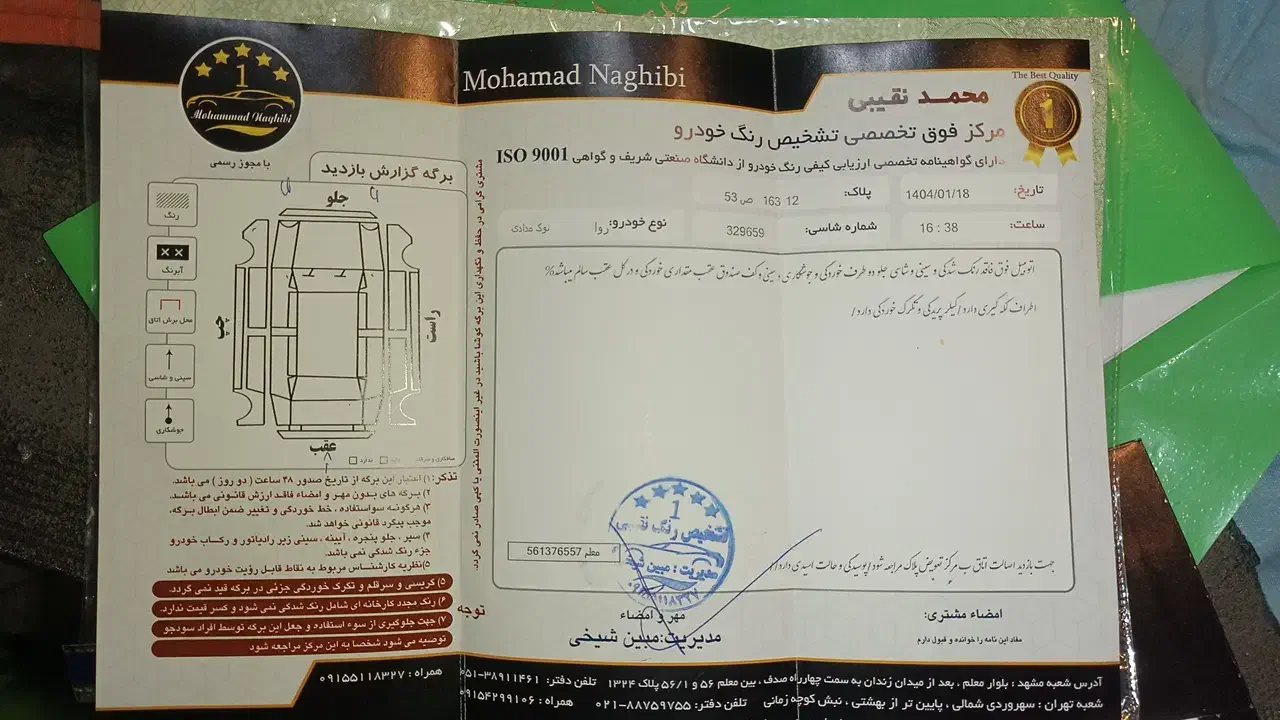 Mohamad Naghibi
The Best Quality
1
محمد نقیبی
مرکز فوق تخصصی تشخیص رنگ خودرو
دارای گواهینامه تخصصی ارزیابی کیفی رنگ خودرو از دانشگاه صنعتی شریف و گواهی ISO 9001
تاریخ: 1404/01/18
پلاک: 12 163 ص 53
ساعت: 16 : 38
شماره شاسی: 329659
نوع خودرو: روا
نوک مدادی
اتومبیل فوق فاقد رنگ شدگی و سینی و شاسی جلو دو طرف خوردگی و جوشکاری ، سینی وکف صندوق عقب مقداری خوردگی و در کل عقب سالم میباشد%
اطراف لکه گیری دارد/کیلر پریدگی و تگرگ خوردگی دارد/
جهت بازدید اصالت اتاق ب مرکز تعویض پلاک مراجعه شود/پوسیدگی و حالت اسیدی دارد//
معلم 561376557
1
تشخیص رنگ نقیبی
مدیریت : مبین
مهر و امضاء
مدیریت:مبین شیخی
امضاء مشتری:
مفاد این نامه را خوانده و قبول دارم
1
Mohammad Naghibi
با مجوز رسمی
برگه گزارش بازدید
جلو
رنگ
آبرنگ
محل برش اتاق
سینی و شاسی
جوشکاری
چپ
راست
عقب
ندارد
مشتری گرامی در حفظ و نگهداری این برگه کوشا باشید در غیر اینصورت المثنی یا کپی صادر نمی گردد.
تذکر: ۱) اعتبار این برگه از تاریخ صدور ۴۸ ساعت ( دو روز ) می باشد.
۲) برگه های بدون مهر و امضاء فاقد ارزش قانونی می باشد.
۳) هرگونه سواستفاده ، خط خوردگی و تغییر ضمن ابطال برگه،
موجب پیگرد قانونی خواهد شد.
۴) سپر ، جلو پنجره ، آیینه ، سینی زیر رادیاتور و رکاب خودرو
جزء رنگ شدگی نمی باشد.
۵) نظریه کارشناس مربوط به نقاط قابل رؤیت خودرو می باشد
توجه
۵) گریسی و سرقلم و تگرگ خوردگی جزئی در برگه قید نمی گردد.
۶) رنگ مجدد کارخانه ای شامل رنگ شدگی نمی شود و کسر قیمت ندارد.
۷) جهت جلوگیری از سوء استفاده و جعل این برگه توسط افراد سودجو
توصیه می شود شخصا به این مرکز مراجعه شود
آدرس شعبه مشهد : بلوار معلم ، بعد از میدان زندان به سمت چهارراه صدف ، بین معلم ۵۶ و ۵۶/۱ پلاک ۱۳۲۴ تلفن دفتر: ۳۸۹۱۱۴۶۱-۰۵۱ همراه : ۰۹۱۵۵۱۱۸۳۲۷
شعبه تهران : سهروردی شمالی ، پایین تر از بهشتی ، نبش کوچه زمانی تلفن دفتر: ۸۸۷۵۹۷۵۵-۰۲۱ همراه : ۰۹۱۵۴۲۹۹۱۰۶